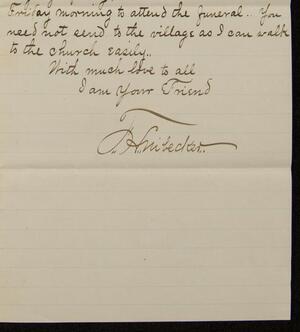 Friday morning to attend the funeral.. You
need not send to the village as I can walk
to the church easily..
With much love to all
I am Your Friend